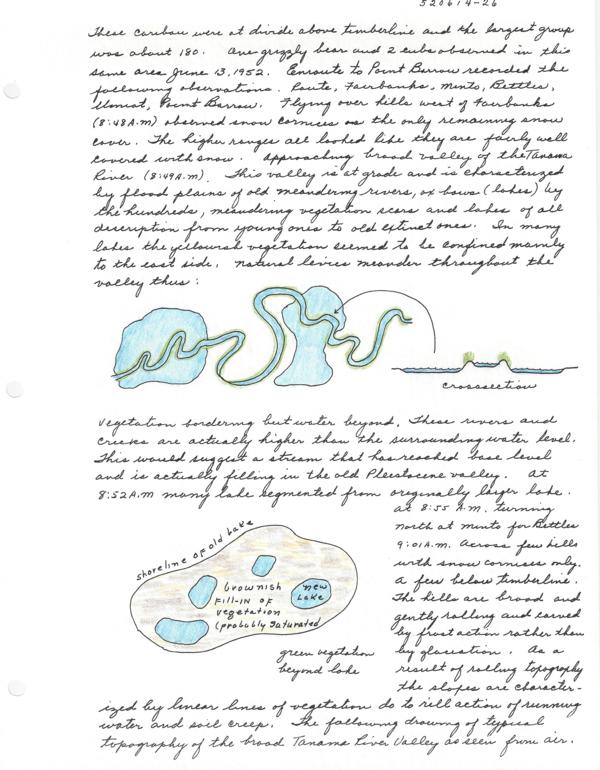 520614-26
These caribou were at divide above timberline and the largest group
was about 180. One grizzly bear and 2 cubs observed in this
same area June 13, 1952. Enroute to Point Barrow recorded the
following observations. Route, Fairbanks, Minto, Bettles,
Umiat, Point Barrow. Flying over hills west of Fairbanks
(8:48A.m) observed snow cornices as the only remaining snow
cover. The higher ranges all looked like they are fairly well
covered with snow. Approaching broad valley of the Tanana
River (8:49A.m). This valley is at grade and is characterized
by flood plains of old meandering rivers, ox bows (lakes) by
the hundreds, meandering vegetation scars and lakes of all
description from young ones to old extinct ones. In many
lakes the yellowish vegetation seemed to be confined mainly
to the east side. Natural levies meander throughout the
valley thus:
crossection
Vegetation bordering but water beyond. These rivers and
creeks are actually higher than the surrounding water level.
This would suggest a stream that has reached base level
and is actually filling in the old Pleistocene valley. At
8:52A.m many lake segmented from originally larger lake.
At 8:55 A.m. turning
north at minto for Bettles
9:01A.m. Across few hills
with snow cornices only.
A few below timberline.
The hills are broad and
gently rolling and carved
by frost action rather than
by glaciation. As a
result of rolling topography
the slopes are character-
shoreline of old Lake
brownish
FILL-IN OF
vegetation
(probably saturated
new
Lake
green vegetation
beyond lake
ized by linear lines of vegetation do to rill action of running
water and soil creep. The following drowing of typical
topography of the broad Tanana River Valley as seen from air.